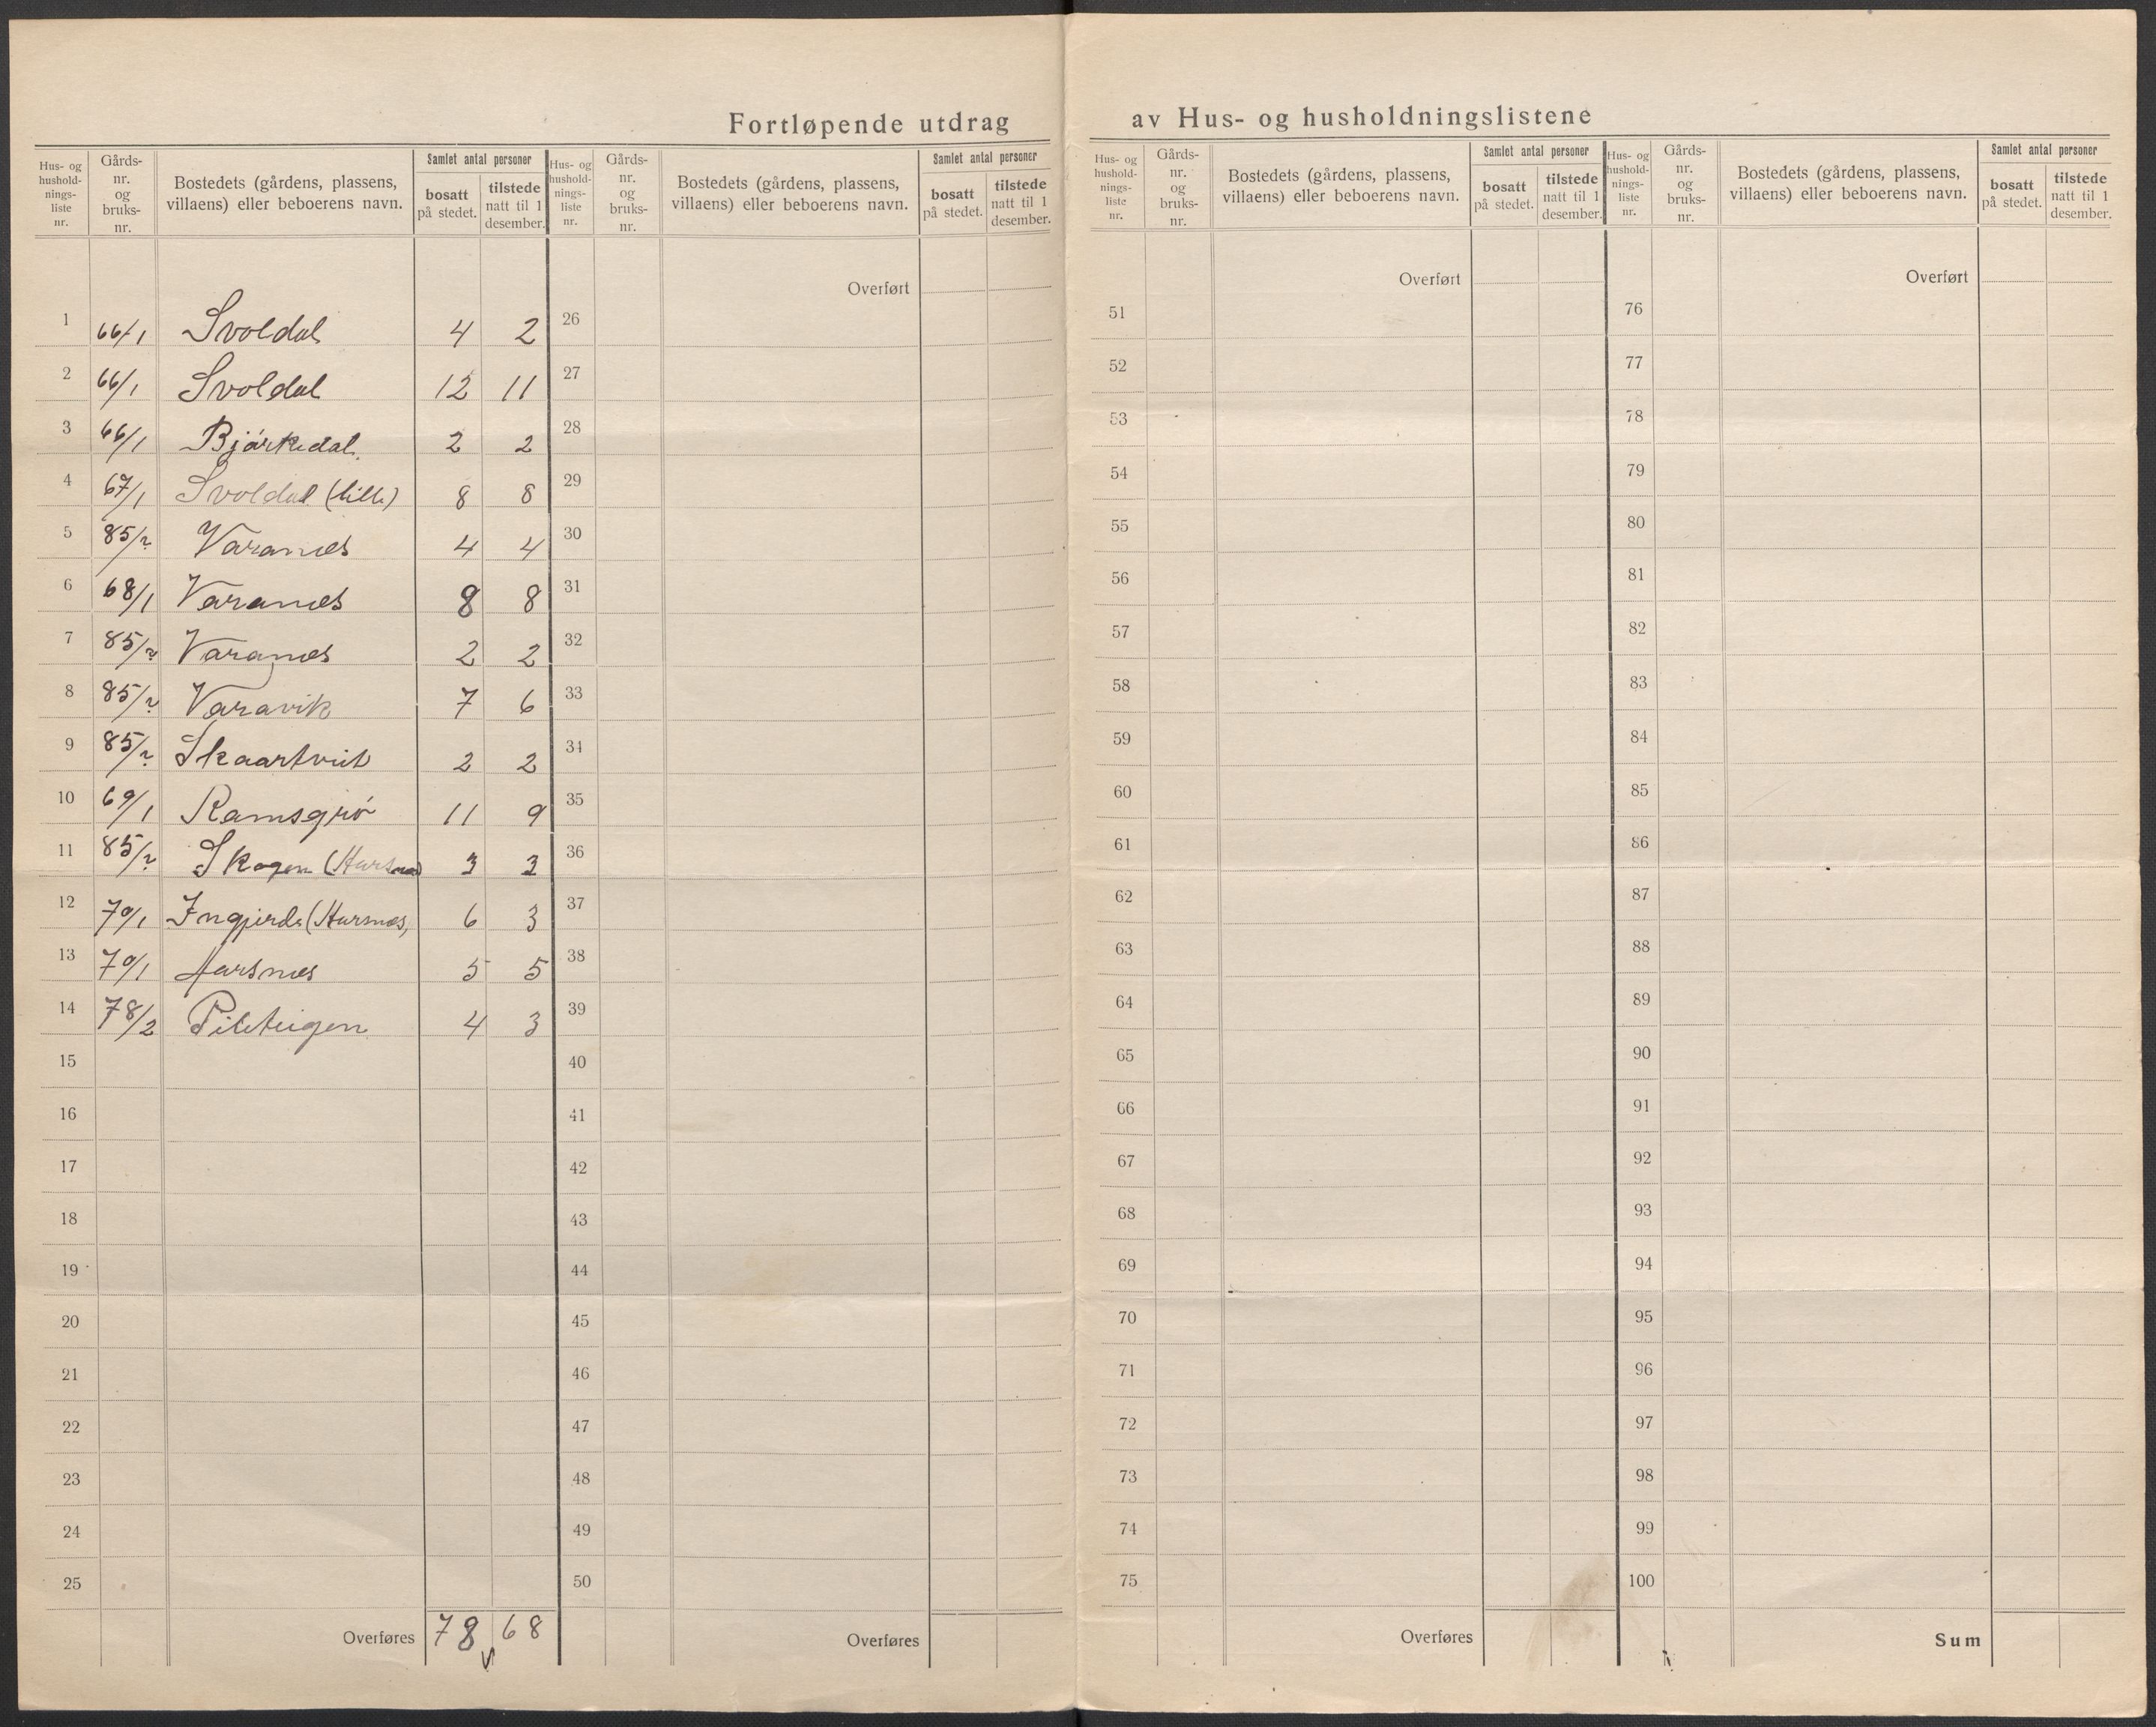 Fortløpende utdrag av Hus- og husholdningslistene
Hus- og hushold-nings-liste nr. | Gårds-nr. og bruks-nr. | Bostedets (gårdens, plassens, villaens) eller beboerens navn. | Samlet antal personer | bosatt på stedet. | tilstede natt til 1 desember.
Hus- og hushold-nings-liste nr. | Gårds-nr. og bruks-nr. | Bostedets (gårdens, plassens, villaens) eller beboerens navn. | Samlet antal personer | bosatt på stedet. | tilstede natt til 1 desember.
Hus- og hushold-nings-liste nr. | Gårds-nr. og bruks-nr. | Bostedets (gårdens, plassens, villaens) eller beboerens navn. | Samlet antal personer | bosatt på stedet. | tilstede natt til 1 desember.
Hus- og hushold-nings-liste nr. | Gårds-nr. og bruks-nr. | Bostedets (gårdens, plassens, villaens) eller beboerens navn. | Samlet antal personer | bosatt på stedet. | tilstede natt til 1 desember.
1 66/1 Svoldal 4 2
2 66/1 Svoldal 12 11
3 66/1 Björkedal. 2 2
4 67/1 Svoldal (lille) 8 8
5 85/2 Varanes 4 4
6 68/1 Varanes 8 8
7 85/2 Varanes 2 2
8 85/2 Varavik 7 6
9 85/2 Skaartveit 2 2
10 69/1 Ramsgrö 11 9
11 85/2 Skogen 3 3
12 70/1 6 3
13 70/1 Aarsnes 5 5
14 78/2 4 3
15
16
17
18
19
20
21
22
23
24
25
Overføres 78 68
Overført
26
27
28
29
30
31
32
33
34
35
36
37
38
39
40
41
42
43
44
45
46
47
48
49
50
Overføres
Overført
51
52
53
54
55
56
57
58
59
60
61
62
63
64
65
66
67
68
69
70
71
72
73
74
75
Overføres
Overført
76
77
78
79
80
81
82
83
84
85
86
87
88
89
90
91
92
93
94
95
96
97
98
99
100
Sum